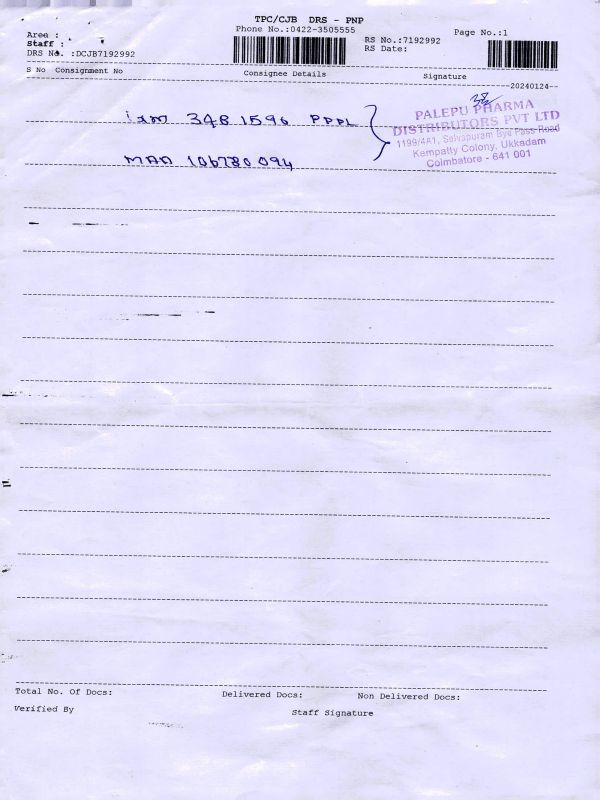 TPC/CJB DRS - PNP
Phone No.:0422-3505555
Page No.:1
Area :
Staff :
DRS No. :DCJB7192992
RS No.:7192992
RS Date:
S No Consignment No Consignee Details Signature
--20240124--
348 1596 PPPL
MAA 106780094
PALEPU PHARMA
DISTRIBUTORS PVT LTD
1199/4A1, Selvapuram Bye Pass Road
Kempatty Colony, Ukkadam
Coimbatore - 641 001
Total No. Of Docs: Delivered Docs: Non Delivered Docs:
Verified By Staff Signature